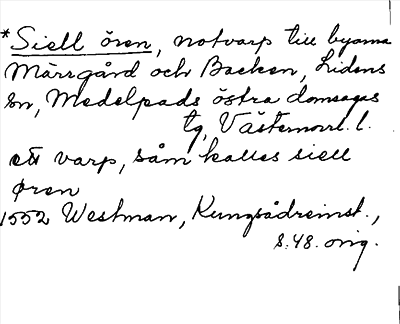 *Siell ören, notvarp till byarna
Märrgård och Backen, Lidens
sn, Medelpads östra domsagas
tg, Västernorrl. l.
ett varp, såm kalles siell
øren
1552 Westman, Kungsådreinst.,
s. 48. orig.